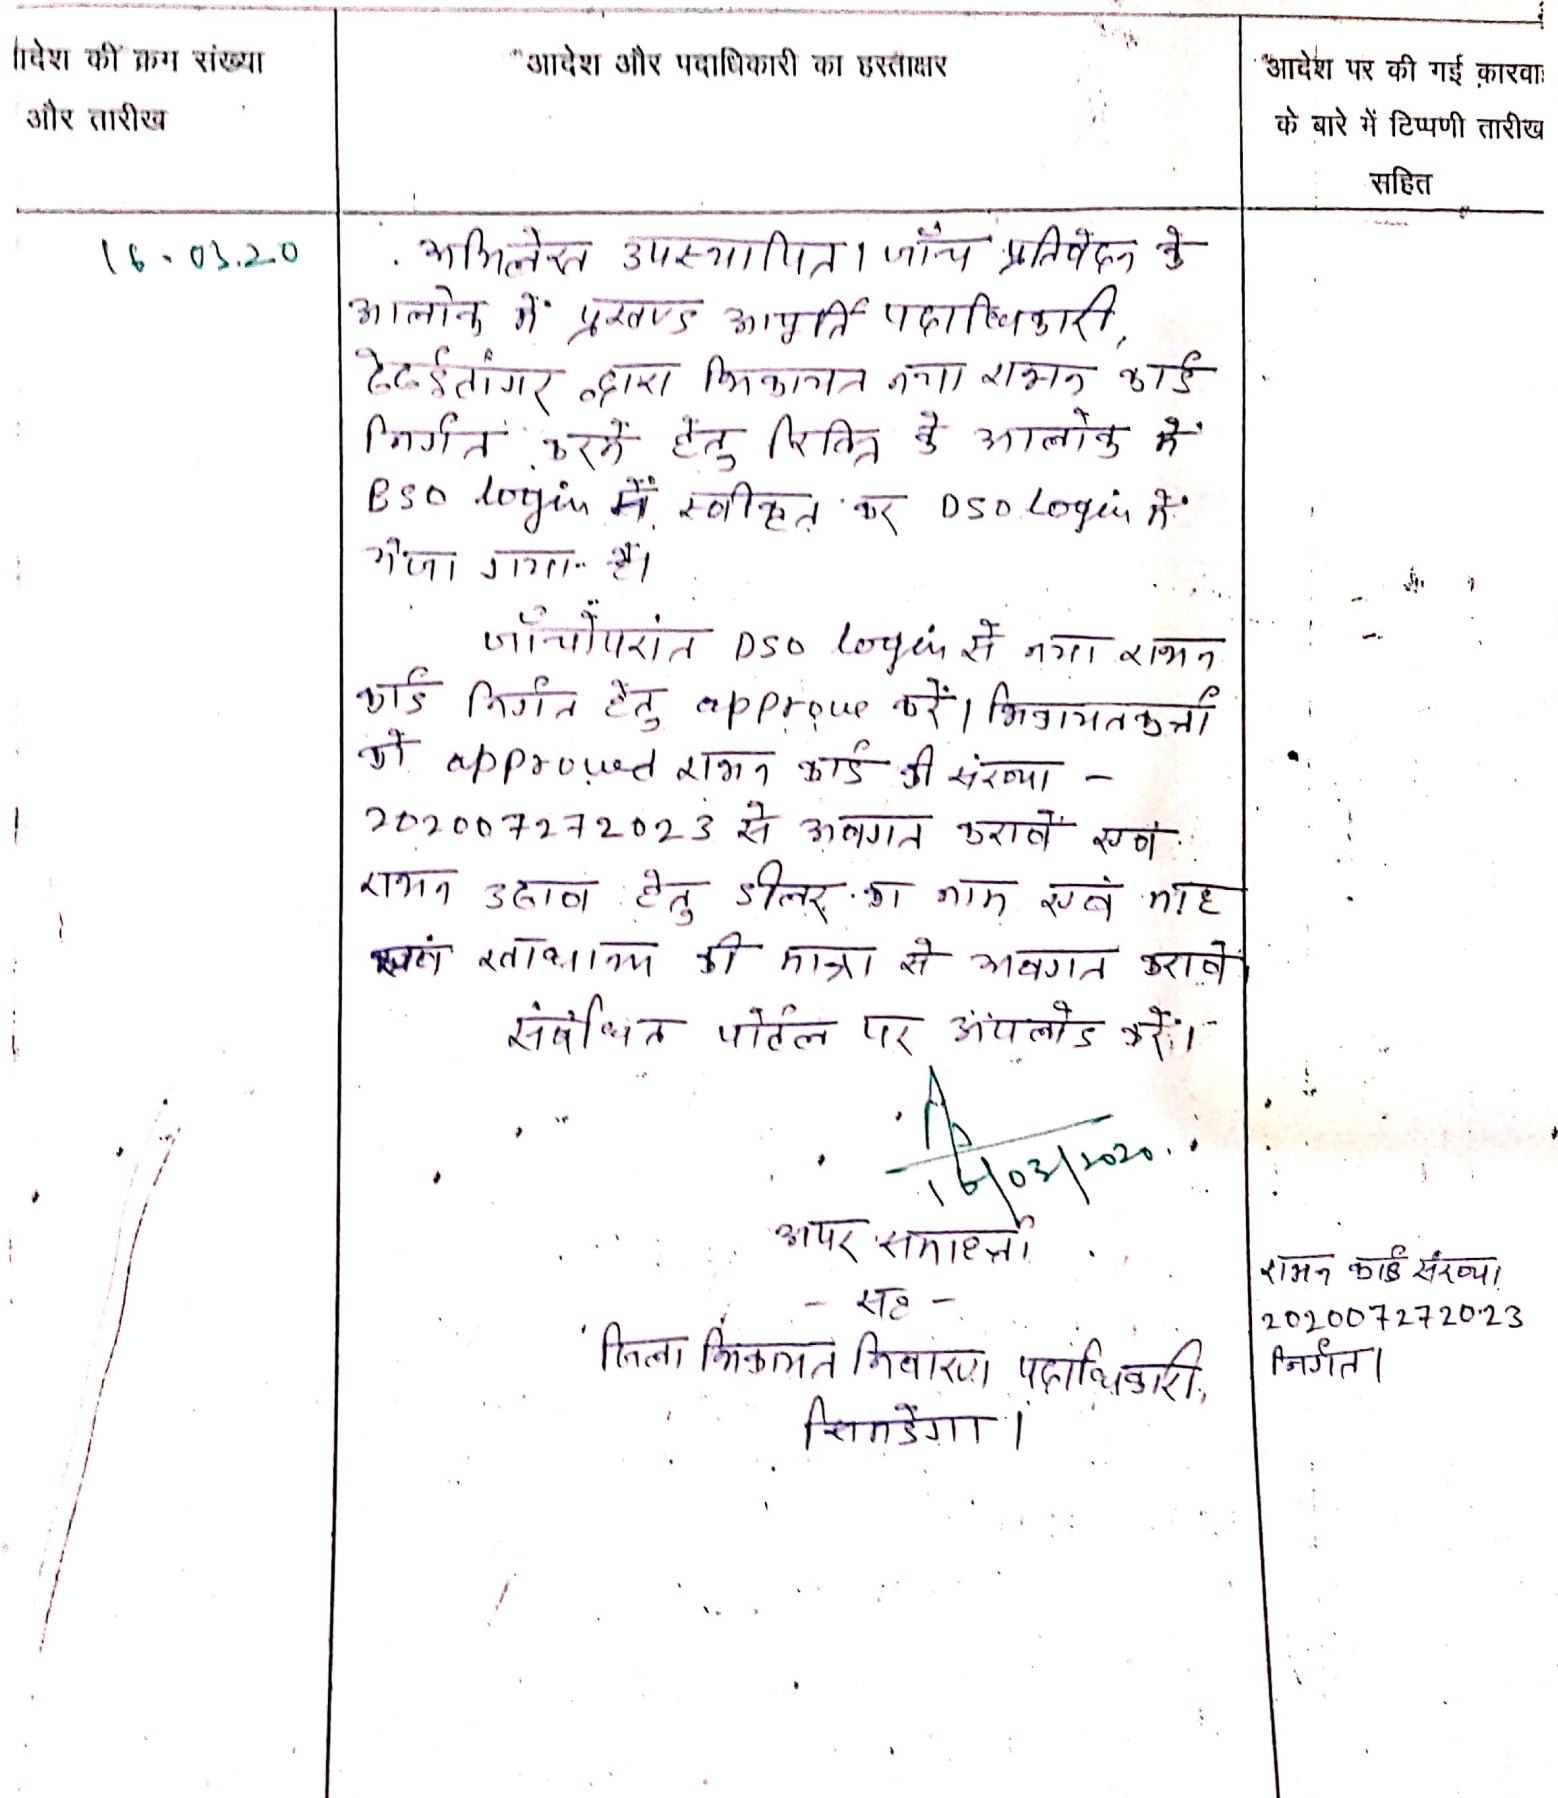 ादेश की क्रम संख्या
और तारीख
आदेश और पदाधिकारी का हस्ताक्षर
आदेश पर की गई कारवा
के बारे में टिप्पणी तारीख
सहित
16.03.20
अभिलेख उपस्थापित। जाँच प्रतिवेदन के
आलोक में प्रखण्ड आपूर्ति पदाधिकारी,
ठेठईटांगर द्वारा शिकायत नया राशन कार्ड
निर्गत करने हेतु रिक्ति के आलोक में
BSO login में स्वीकृत कर DSO login में
भेजा गया है।
जाँचोपरांत DSO login से नया राशन
कार्ड निर्गत हेतु approve करें। शिकायतकर्त्ता
को approved राशन कार्ड की संख्या -
202007272023 से अवगत करावें एवं
राशन उठाव हेतु डीलर का नाम एवं माह
एवं खाद्यान्न की मात्रा से अवगत करावें
संबंधित पोर्टल पर अपलोड करें।
16/03/2020.
अपर समाहर्त्ता
- सह -
जिला शिकायत निवारण पदाधिकारी,
सिमडेगा।
राशन कार्ड संख्या
202007272023
निर्गत।